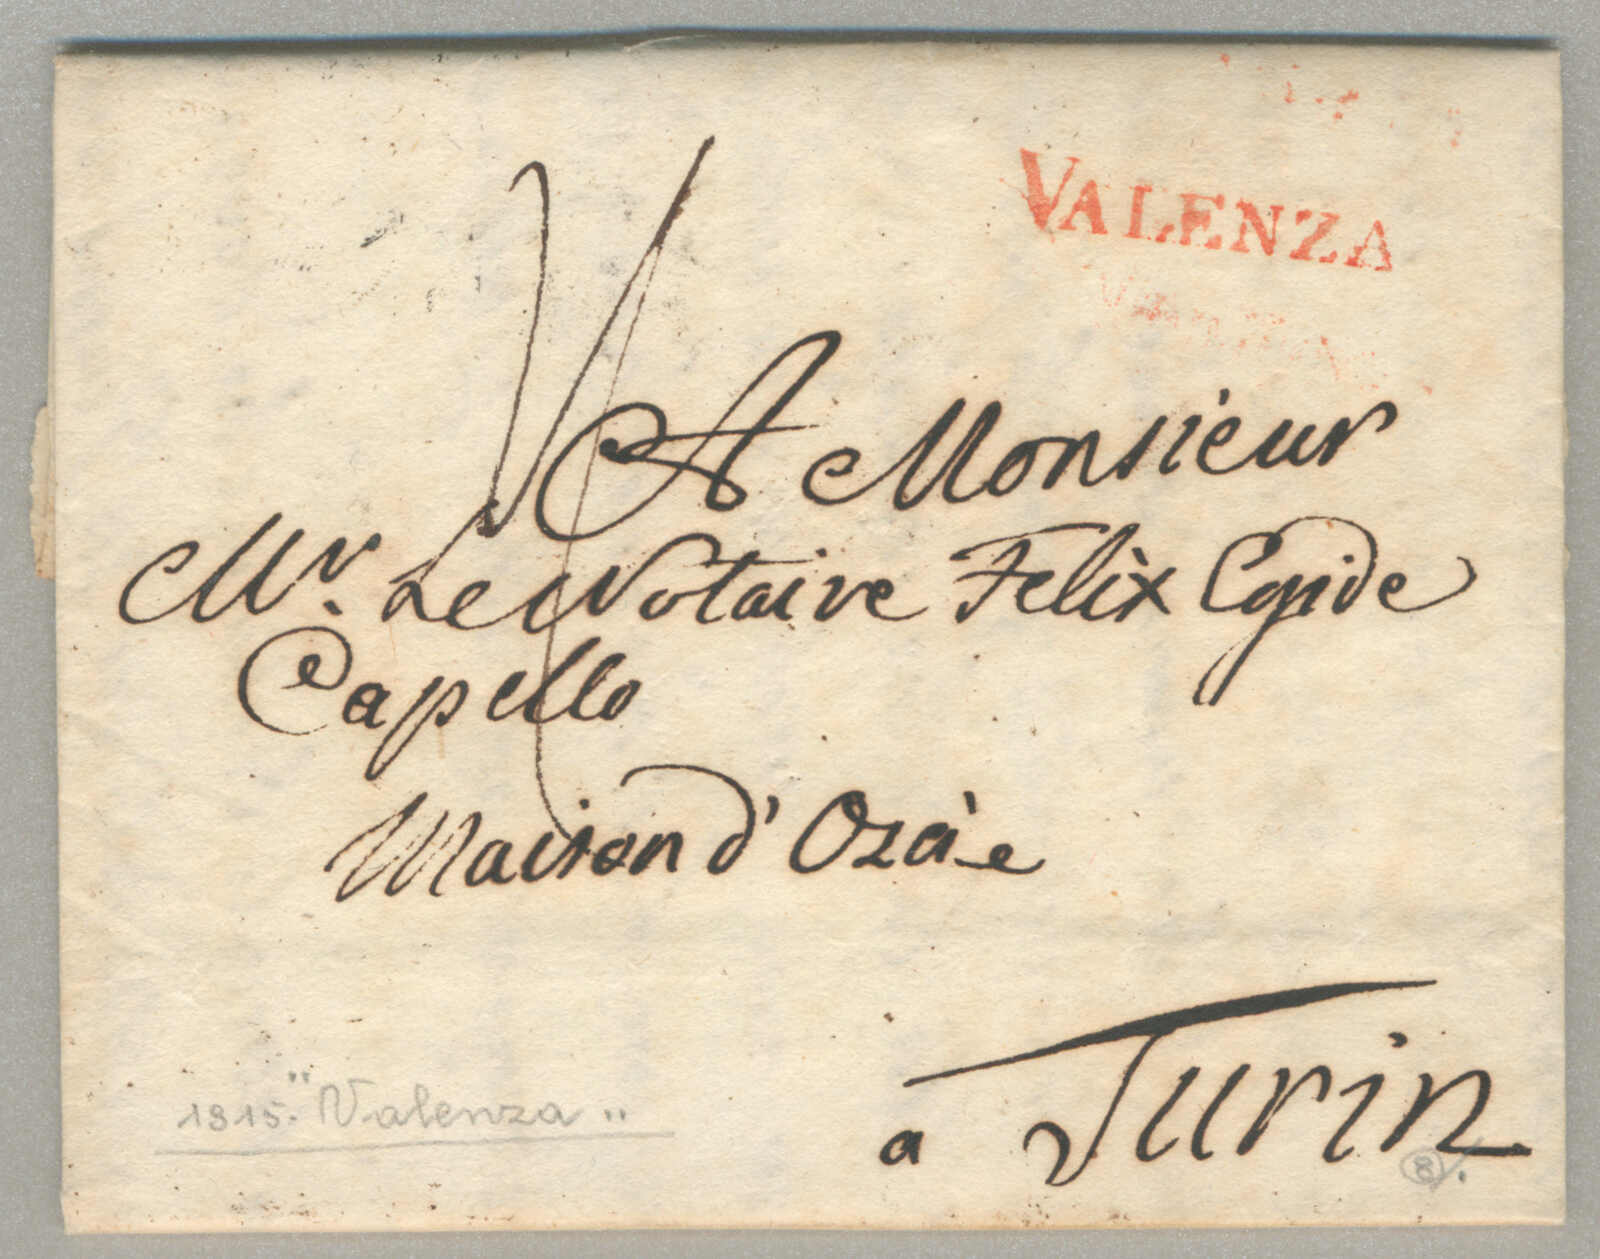 VALENZA
A Monsieur
Mr. Le Notaire Felix Egide
Capello
Maison d'Ozà e
a Turin
1815. "Valenza"
8